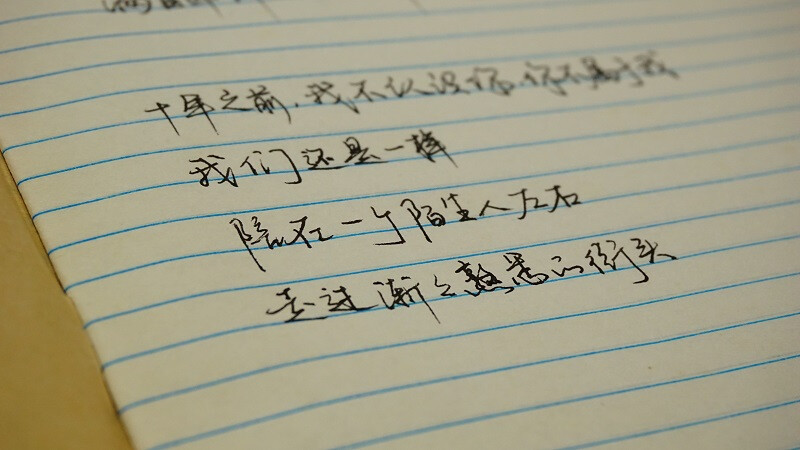 十年之前,我不认识你,你不属于我
我们还是一样
陪在一个陌生人左右
走过渐渐熟悉的街头